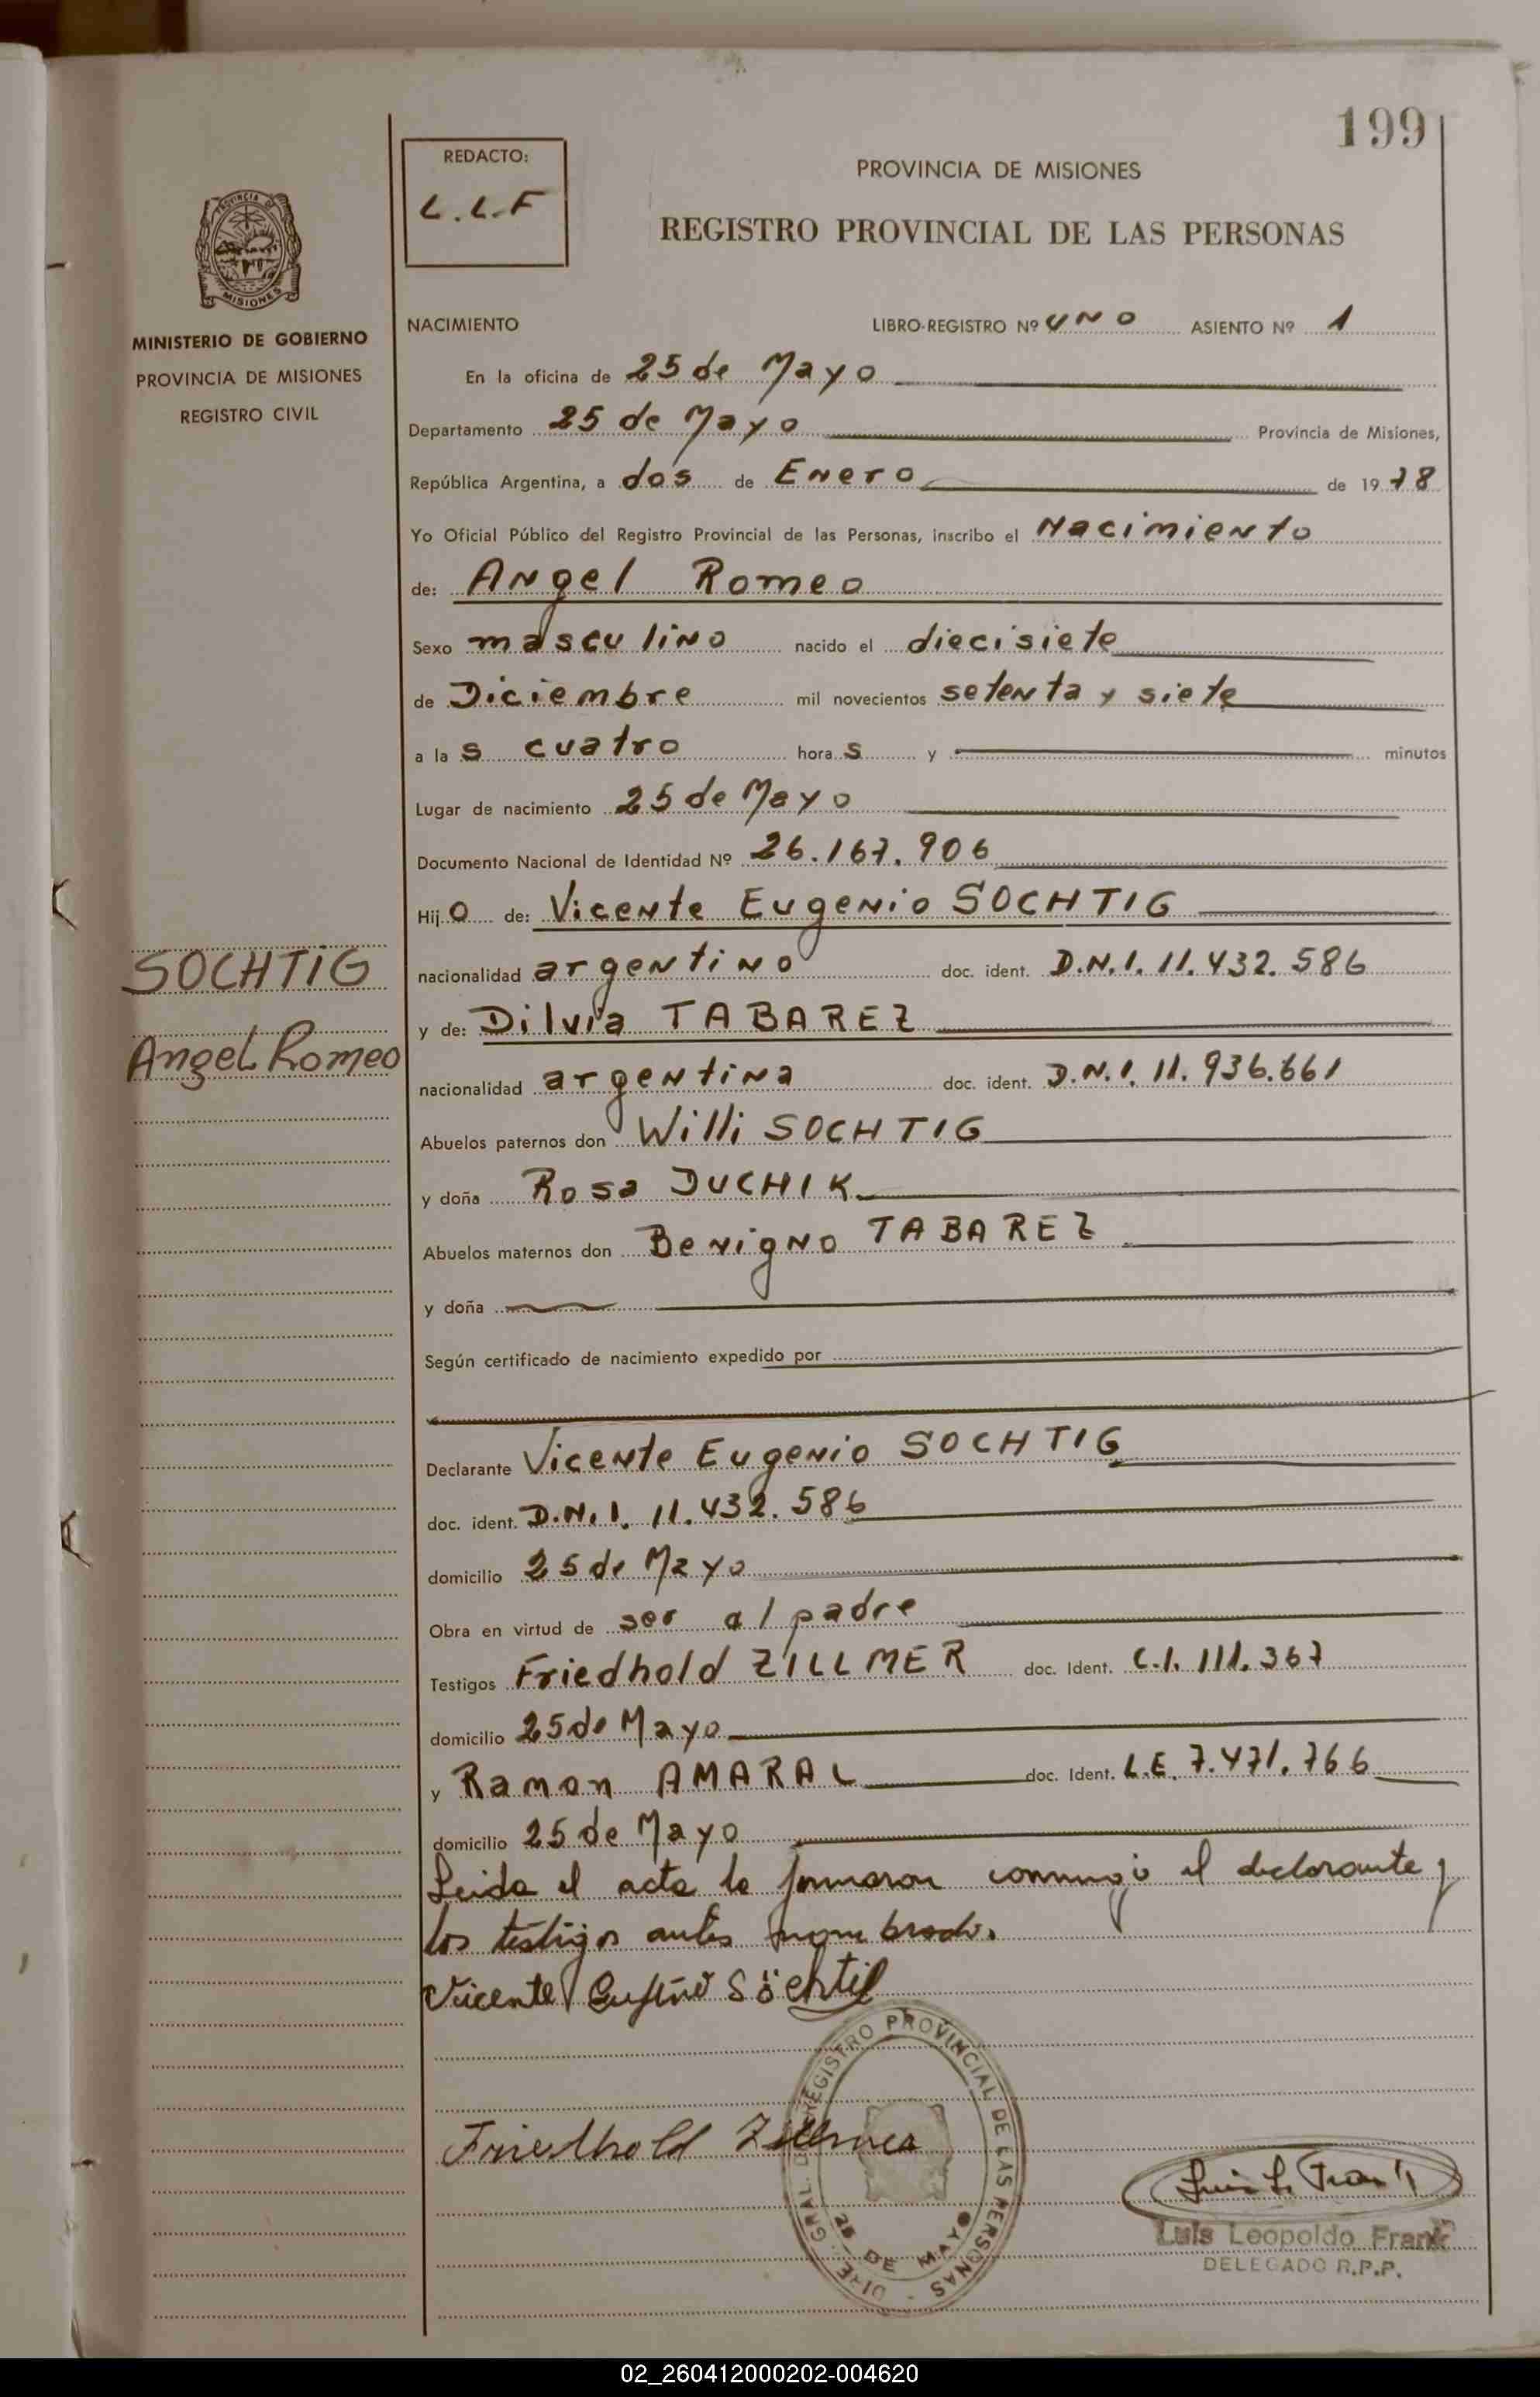 199
REDACTO:
L.L.F
PROVINCIA DE MISIONES
REGISTRO PROVINCIAL DE LAS PERSONAS
PROVINCIA DE
MISIONES
MINISTERIO DE GOBIERNO
PROVINCIA DE MISIONES
REGISTRO CIVIL
NACIMIENTO LIBRO-REGISTRO Nº UNO ASIENTO Nº 1
En la oficina de 25 de Mayo
Departamento 25 de Mayo Provincia de Misiones,
República Argentina, a dos de Enero de 1978
Yo Oficial Público del Registro Provincial de las Personas, inscribo el Nacimiento
de: Angel Romeo
Sexo masculino nacido el diecisiete
de Diciembre mil novecientos setenta y siete
a las cuatro horas y minutos
Lugar de nacimiento 25 de Mayo
Documento Nacional de Identidad Nº 26.167.906
Hijo de: Vicente Eugenio SOCHTIG
SOCHTIG
nacionalidad argentino doc. ident. D.N.I. 11.432.586
y de: Dilvia TABAREZ
Angel Romeo
nacionalidad argentina doc. ident. D.N.I. 11.936.661
Abuelos paternos don Willi SOCHTIG
y doña Rosa DUCHIK
Abuelos maternos don Benigno TABAREZ
y doña
Según certificado de nacimiento expedido por
Declarante Vicente Eugenio SOCHTIG
doc. ident. D.N.I. 11.432.586
domicilio 25 de Mayo
Obra en virtud de ser al padre
Testigos Friedhold ZILLMER doc. Ident. C.I. 111.367
domicilio 25 de Mayo
y Ramon AMARAL doc. Ident. L.E. 7.471.766
domicilio 25 de Mayo
Leida el acta la firmaron conmigo el declarante y
los testigos antes nombrado.
Vicente Söchtig
Friedhold Zillmer
DIRE. GRAL. DEL REGISTRO PROVINCIAL DE LAS PERSONAS
25 DE MAYO
Luis L. Frank
Luis Leopoldo Frank
DELEGADO R.P.P.
02_260412000202-004620